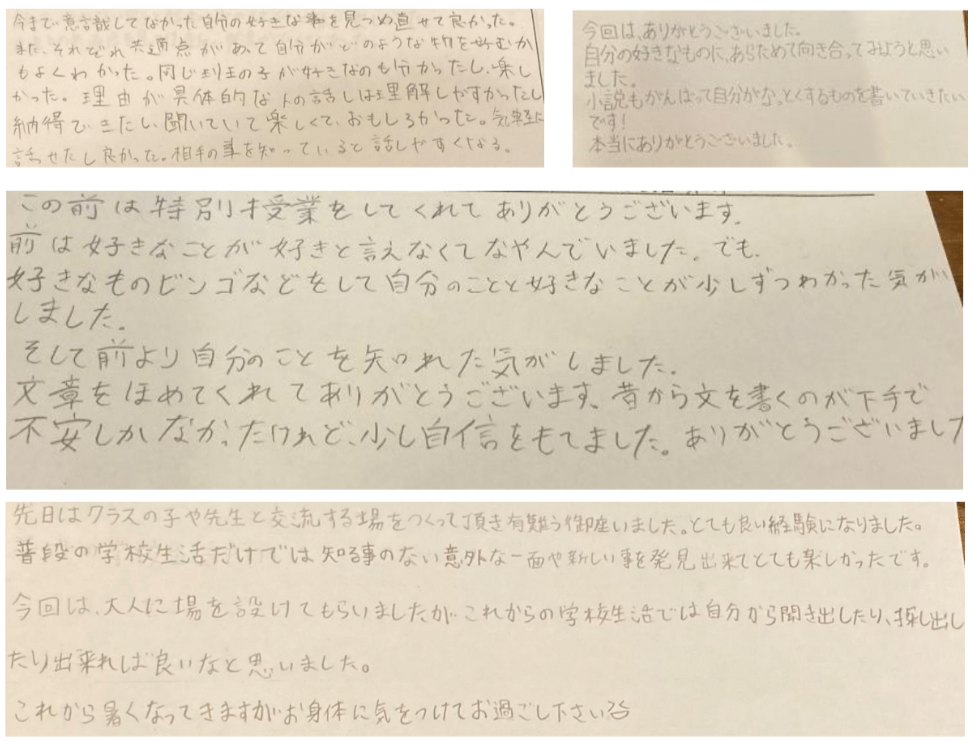 今まで意識してなかった自分の好きな事を見つめ直せて良かった。
また、それぞれ共通点があって自分がどのような物を好むか
もよくわかった。同じ班の子が好きなのも分かったし、楽し
かった。理由が具体的な人の話しは理解しやすかったし
納得できたし、聞いていて楽しくて、おもしろかった。気軽に
話せたし良かった。相手の事を知っていると話しやすくなる。
今回は、ありがとうございました。
自分の好きなものに、あらためて向き合ってみようと思い
ました。
小説もがんばって自分がなっとくするものを書いていきたい
です!
本当にありがとうございました。
この前は特別授業をしてくれてありがとうございます。
前は好きなことが好きと言えなくてなやんでいました。でも、
好きなものビンゴなどをして自分のことと好きなことが少しずつわかった気が
しました。
そして前より自分のことを知れた気がしました。
文章をほめてくれてありがとうございます。昔から文を書くのが下手で
不安しかなかったけれど、少し自信をもてました。ありがとうございました
先日はクラスの子や先生と交流する場をつくって頂き有難う御座いました。とても良い経験になりました。
普段の学校生活だけでは知る事のない意外な一面や新しい事を発見出来てとても楽しかったです。
今回は、大人に場を設けてもらいましたが、これからの学校生活では自分から聞き出したり、探し出し
たり出来れば良いなと思いました。
これから暑くなってきますがお身体に気をつけてお過ごし下さい